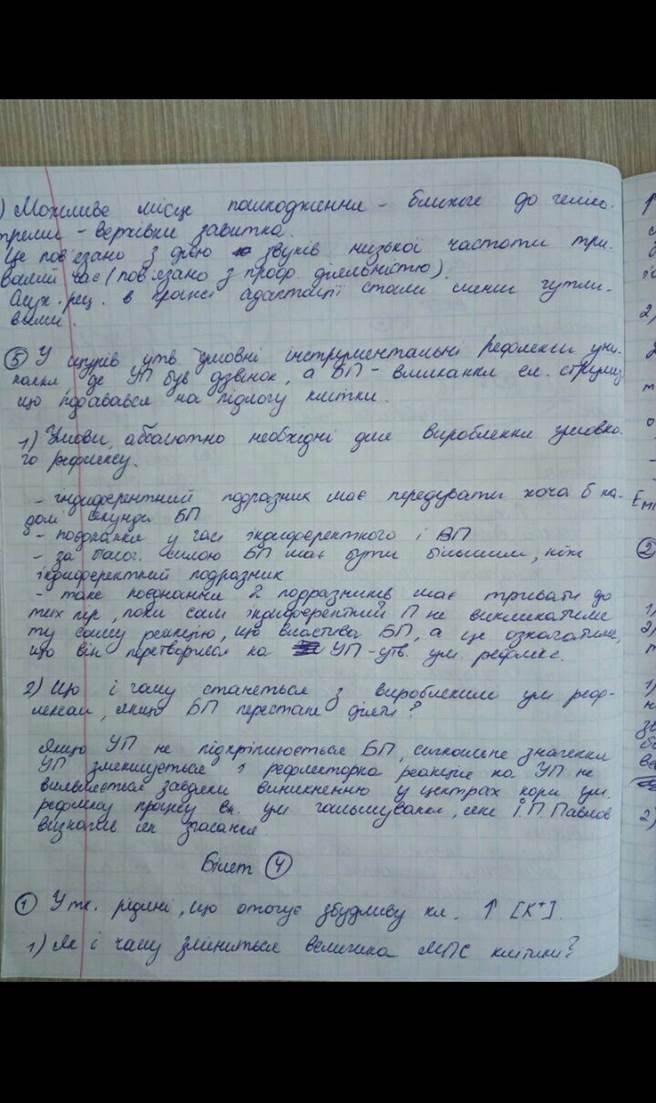 ) Можливе місце пошкодження - ближче до геліко-
треми - верхівки завитка.
Це пов'язано з дією звуків низької частоти три-
валий час (пов'язано з проф. діяльністю).
Слух. рец. в процесі адаптації стали менш чутли-
вими.
⑤ У щурів утв. умовні інструментальні рефлекси уни-
кання де УП був дзвінок, а БП - вмикання ел. струму,
що подавався на підлогу клітки.
1) Умови, абсолютно необхідні для вироблення умовно-
го рефлексу.
- індиферентний подразник має передувати хоча б на
долі секунди БП
- поєднання у часі індиферентного і БП
- за біолог. силою БП має бути більшим, ніж
індиферентний подразник
- таке поєднання 2 подразників має тривати до
тих пір, поки сам індиферентний П не викликатиме
ту саму реакцію, що властива БП, а це означатиме,
що він перетворився на УП - утв. ум. рефлекс.
2) Що і чому станеться з виробленим ум. реф-
лексом, якщо БП перестане діяти?
Якщо УП не підкріплюється БП, сигнальне значення
УП зменшується і рефлекторна реакція на УП не
виявляється завдяки виникненню у центрах кори ум.
рефлексу процесу вн. ум. гальмування, яке І.П. Павлов
визначив як згасання
Білет ④
① У тк. рідині, що оточує збудливу кл. ↑ [K⁺].
1) Як і чому зміниться величина МПС клітини?
2)
Eмп
②
1)
2)
2)